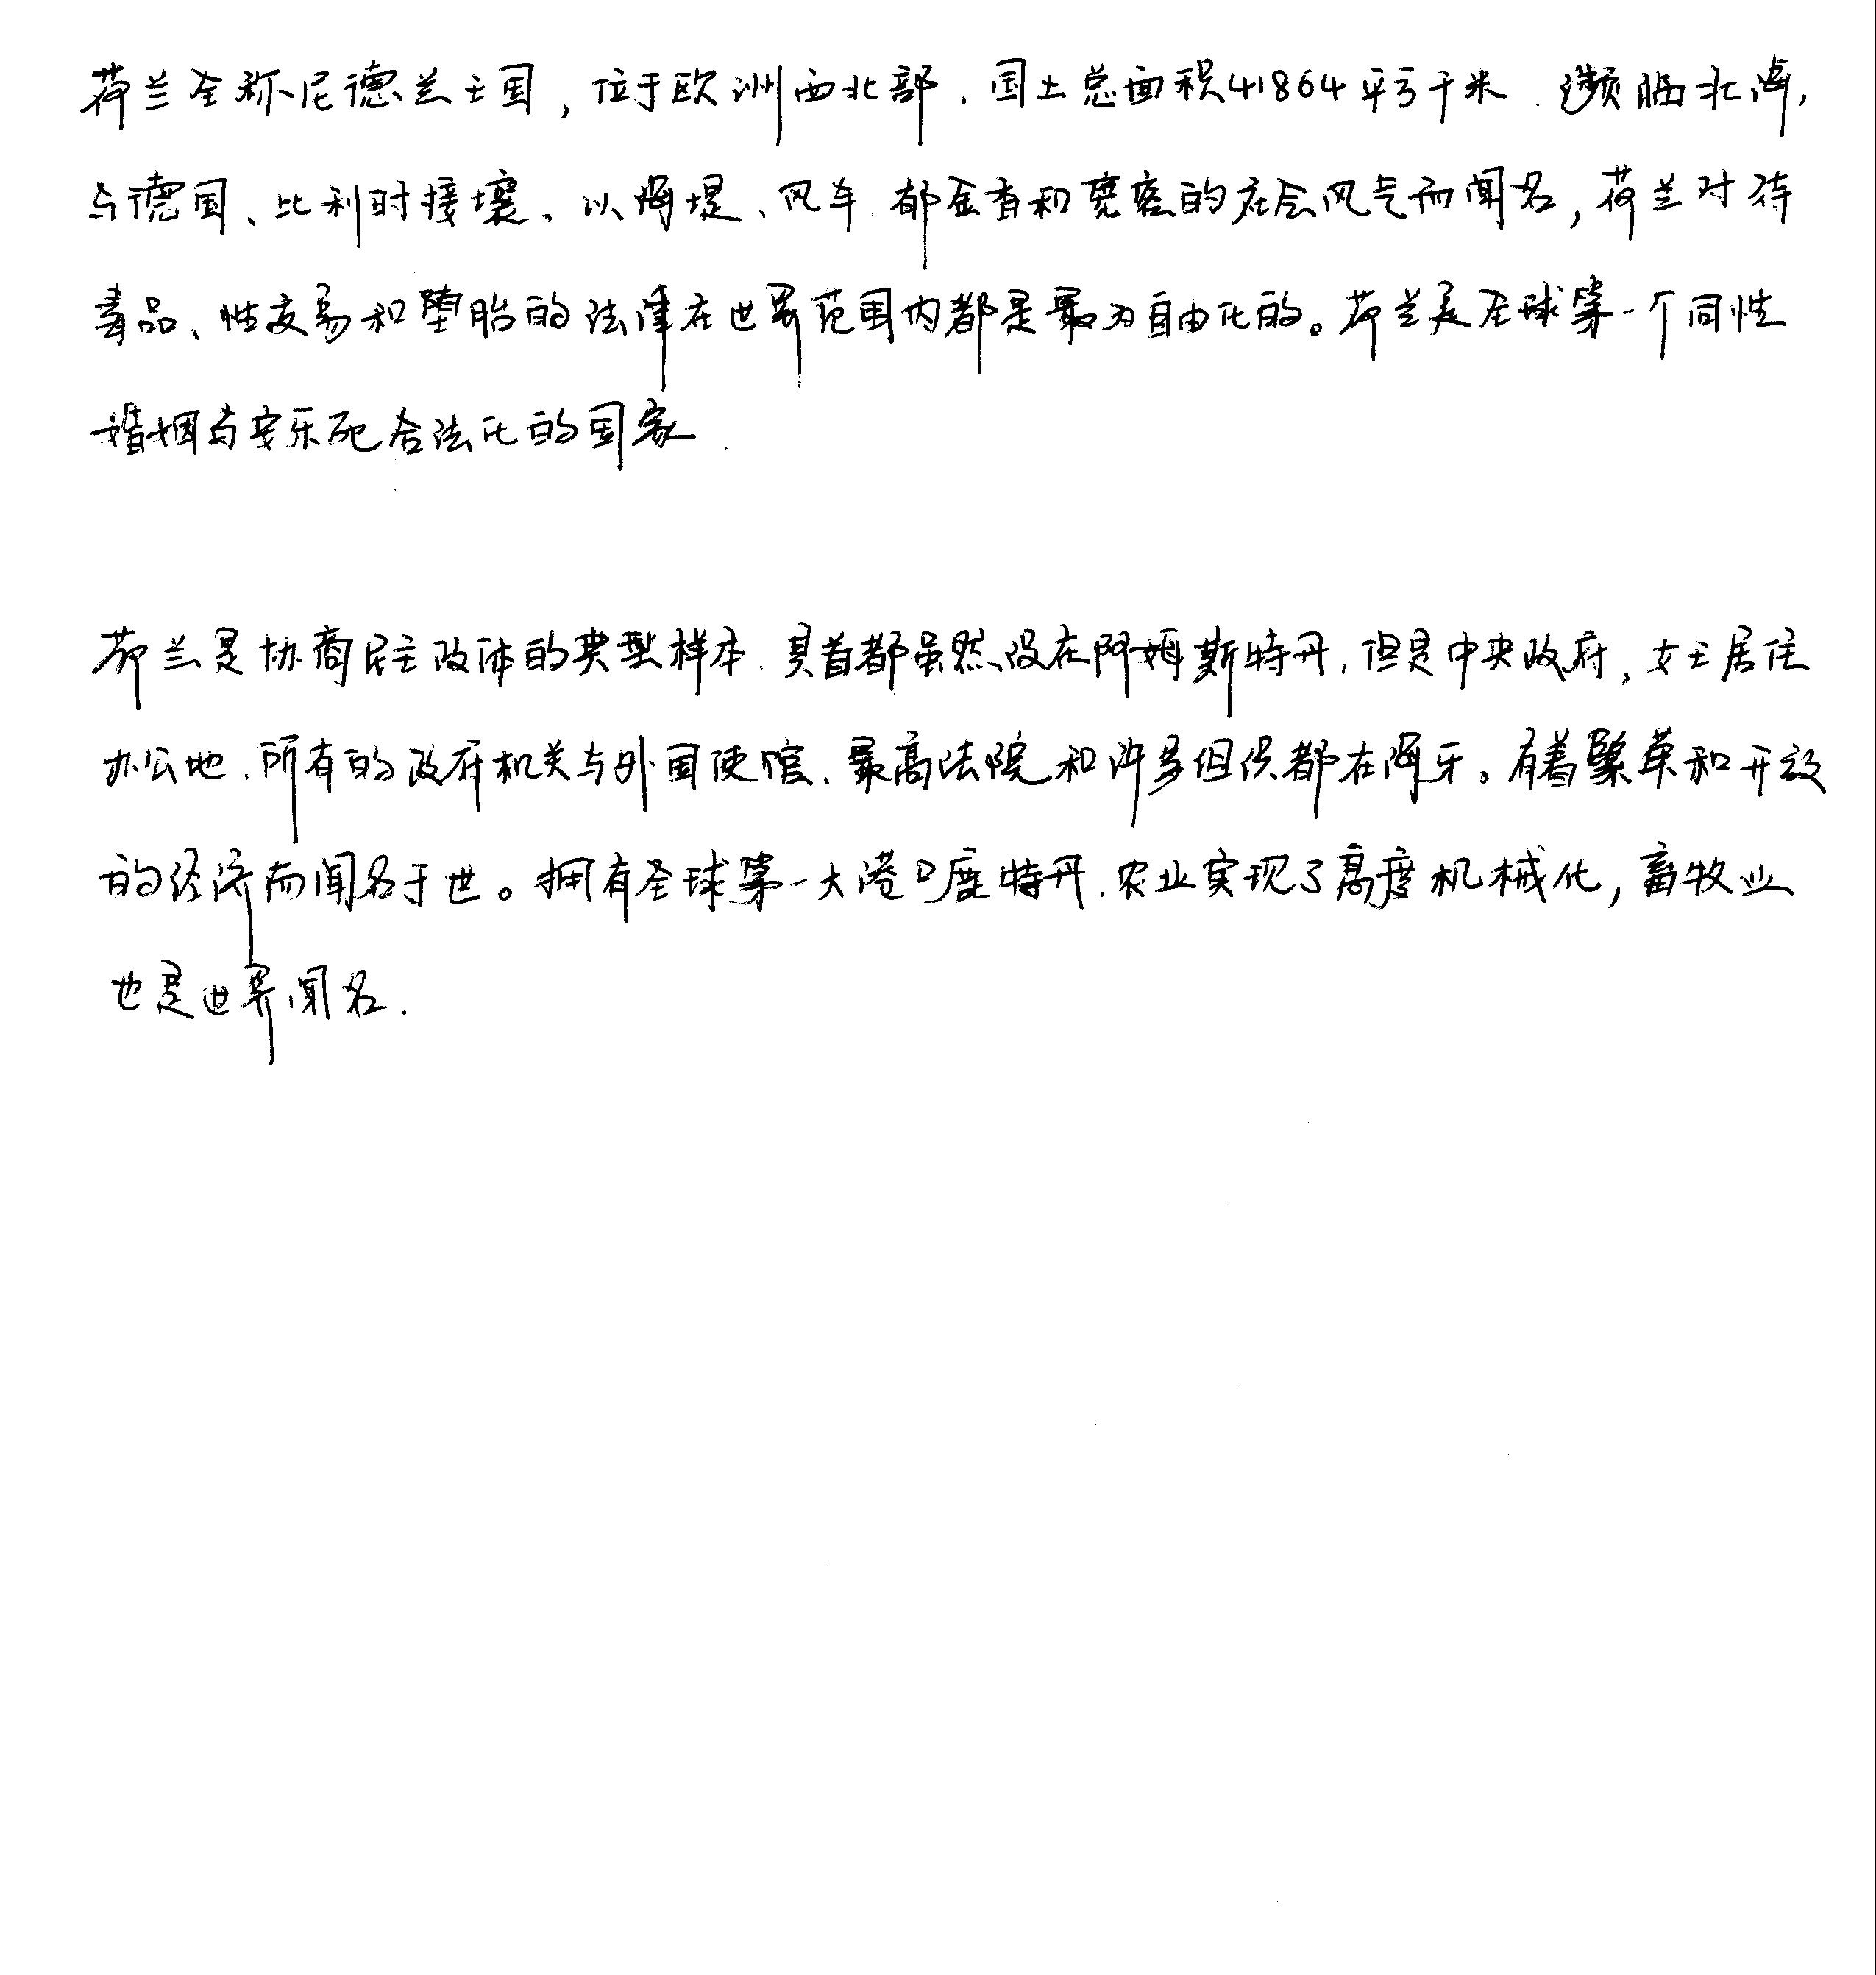 荷兰全称尼德兰王国，位于欧洲西北部，国土总面积41864平方千米，濒临北海，
与德国、比利时接壤。以海堤、风车、郁金香和宽容的社会风气而闻名，荷兰对待
毒品、性交易和堕胎的法律在世界范围内都是最为自由化的。荷兰是全球第一个同性
婚姻与安乐死合法化的国家.
荷兰是协商民主政体的典型样本，其首都虽然设在阿姆斯特丹，但是中央政府，女王居住
办公地，所有的政府机关与外国使馆、最高法院和许多组织都在海牙。有着繁荣和开放
的经济而闻名于世。拥有全球第一大港口鹿特丹，农业实现了高度机械化，畜牧业
也是世界闻名.